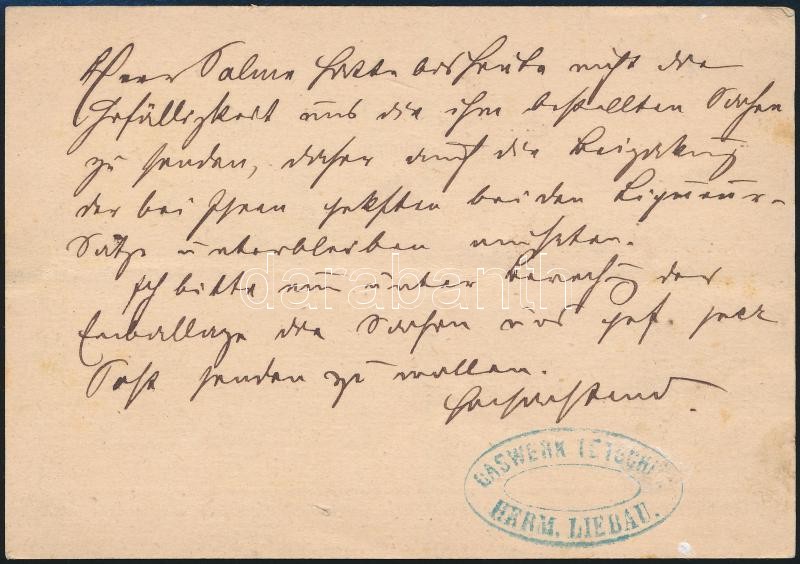 Herr Salme hatte bis heute nicht die
Gefälligkeit uns die ihm bestellten Sachen
zu senden, daher auch die
der bei Ihnen gekauften beiden Liqueur-
Sätze unterbleiben mußten.
Ich bitte nun unter Berechng der
Emballage die Sachen uns gef. per
Post senden zu wollen.
Hochachtend.
GASWERK TETSCHEN
HERM. LIEBAU.
darabanth